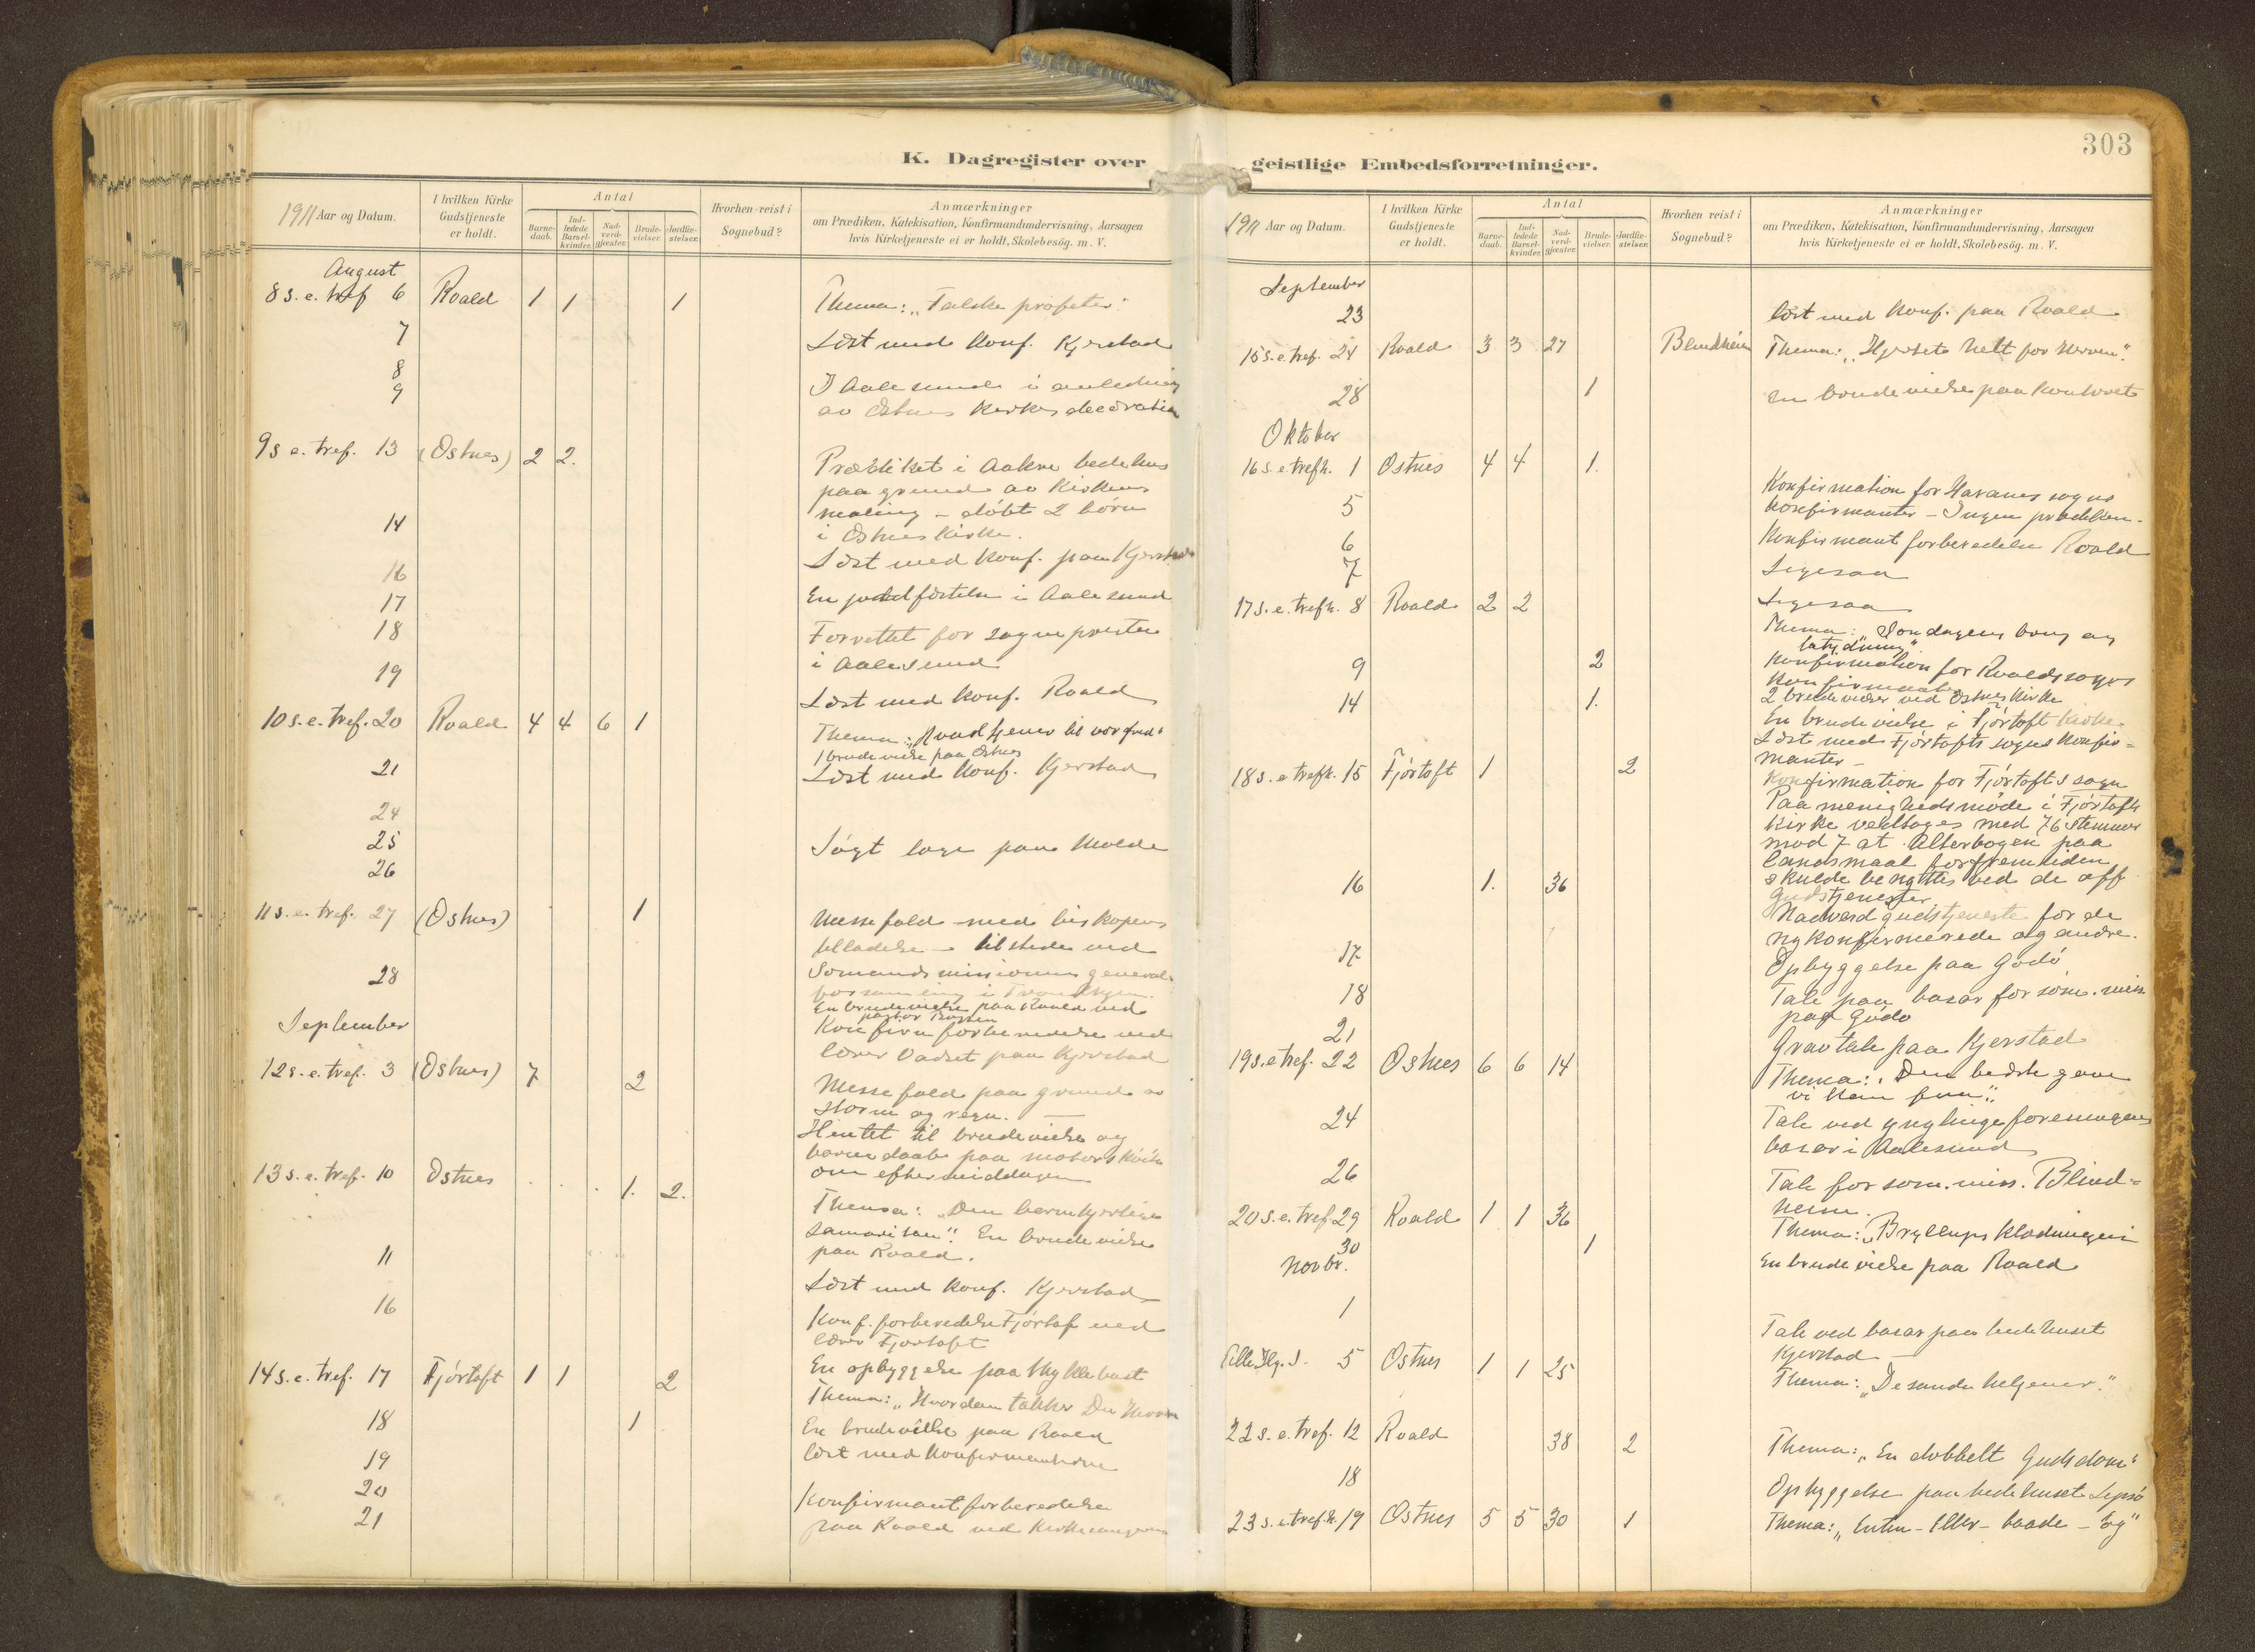 K. Dagregister over
1911 Aar og Datum.
I hvilken Kirke Gudstjeneste er holdt.
Antal
Barne-daab.
Ind-ledede Barsel-kvinder.
Nad-verd-gjæster.
Brude-vielser.
Jordfæ-stelser.
Hvorhen reist i Sognebud?
Anmærkninger
om Prædiken, Katekisation, Konfirmandundervisning, Aarsagen
hvis Kirketjeneste ei er holdt, Skolebesög. m. V.
August
8 s. e. tref 6 Roald 1 1 1 Thema: „Falske profeter"
7 Læst med Konf. Kjerstad
8
9 I Aalesund i anledning
av Østnes kirkes decoration
9 s e. tref. 13 (Østnes) 2 2. Præsdiket i Aakre bedehus
paa grund av Kirkens
maling – döbt 2 börn
i Østnes kirke.
14 Læst med Konf. paa Kjerstad
16 En jordfæstelse i Aalesund
17
18 Forrettet for sognepresten
i Aalesund
19 Læst med Konf. Roald
10 s. e. tref. 20 Roald 4 4 6 1 Thema: „Hvad tjener til vor fred"
1 brudevielse paa Østnes
21 Læst med Konf. Kjerstad
24
25 Sögt læge paa Molde
26
11 s. e. tref. 27 (Østnes) 1 Messefald med biskopens
tilladelse – tilstede ved
Sömandsmissionens general-
forsamling i Trondhjem.
28 En brudevielse paa Roald ved
pastor
Konfirm forberedelse ved
lærer Vadset paa Kjerstad
September
12 s. e. tref. 3 (Østnes) 7 2 Messefald paa grund av
storm og regn. –
Hentet til brudevielse og
barnedaab paa motorskøite
om eftermiddagen
13 s. e. tref. 10 Østnes 1. 2. Thema: „Den barmhjertige
samaritan". En brudevielse
paa Roald.
11 Læst med Konf. Kjerstad
16 Konf. forberedelse Fjörtoft ved
lærer Fjörtoft
En opbyggelse paa Myklebust
14 s. e. tref. 17 Fjörtoft 1 1 2 Thema: „Hvordan takker Du Herren
18 1 En brudevielse paa Roald
19 læst med Konfirmanterne
20
21 Konfirmantforberedelse
paa Roald ved Kirkesangeren
303
geistlige Embedsforretninger.
1911 Aar og Datum.
I hvilken Kirke Gudstjeneste er holdt.
Antal
Barne-daab.
Ind-ledede Barsel-kvinder.
Nad-verd-gjæster.
Brude-vielser.
Jordfæ-stelser.
Hvorhen reist i Sognebud?
Anmærkninger
om Prædiken, Katekisation, Konfirmandundervisning, Aarsagen
hvis Kirketjeneste ei er holdt, Skolebesög. m. V.
September
23 læst med Konf. paa Roald
15 s. e. tref. 24 Roald 3 3 27 Blindheim Thema: „Hjertets helt for Herren".
28 1 En brudevielse paa Kontoret
Oktober
16 s. e trefh. 1 Østnes 4 4 1. Konfirmation for Harams sogns
Konfirmanter – Ingen prædiken.
5 Konfirmant forberedelse Roald
6 Ligesaa
7 Ligesaa
17 s. e. trefh. 8 Roald 2 2 Thema: „Söndagens brug og
betydning"
Konfirmation for Roalds sogns
Konfirmanter
9 2 2 brudevielser ved Østnes Kirke
14 1. En brudevielse i Fjörtoft Kirke.
Læst med Fjörtofts sogns Konfir=
manter –
18 s. e trefh. 15 Fjörtoft 1 2 Konfirmation for Fjörtofts sogn
Paa menighedsmöde i Fjörtofts
Kirke vedtoges med 76 stemmer
mod 7 at Alterbogen paa
landsmaal for fremtiden
skulde benyttes ved de off
gudstjenester.
16 1. 36 Nadverdgudstjeneste for de
nykonfirmerede og andre.
17 Opbyggelse paa Godö
18 Tale paa basar for söm. miss
paa Godö
21 Gravtale paa Kjerstad
19 s. e tref. 22 Østnes 6 6 14 Thema: „Den bedste gave
vi kan
24 Tale ved ynglingeforeningens
basar i Aalesund
26 Tale for söm. miss. Blind=
heim.
20 s. e. tref 29 Roald 1 1 36 Thema: „Bryllupsklædningen
30 1 En brudevielse paa Roald
Novbr.
1 Tale ved basar paa bedehuset
Kjerstad –
Alle Hlg. D. 5 Østnes 1 1 25 Thema: „De sande helgener."
22 s. e. tref. 12 Roald 38 2 Thema: „En dobbelt Gudsdom"
18 Opbyggelse paa bedehuset Lepsö
23 s. e. trefh. 19 Østnes 5 5 30 1 Thema: „Enten – Eller – baade – og"